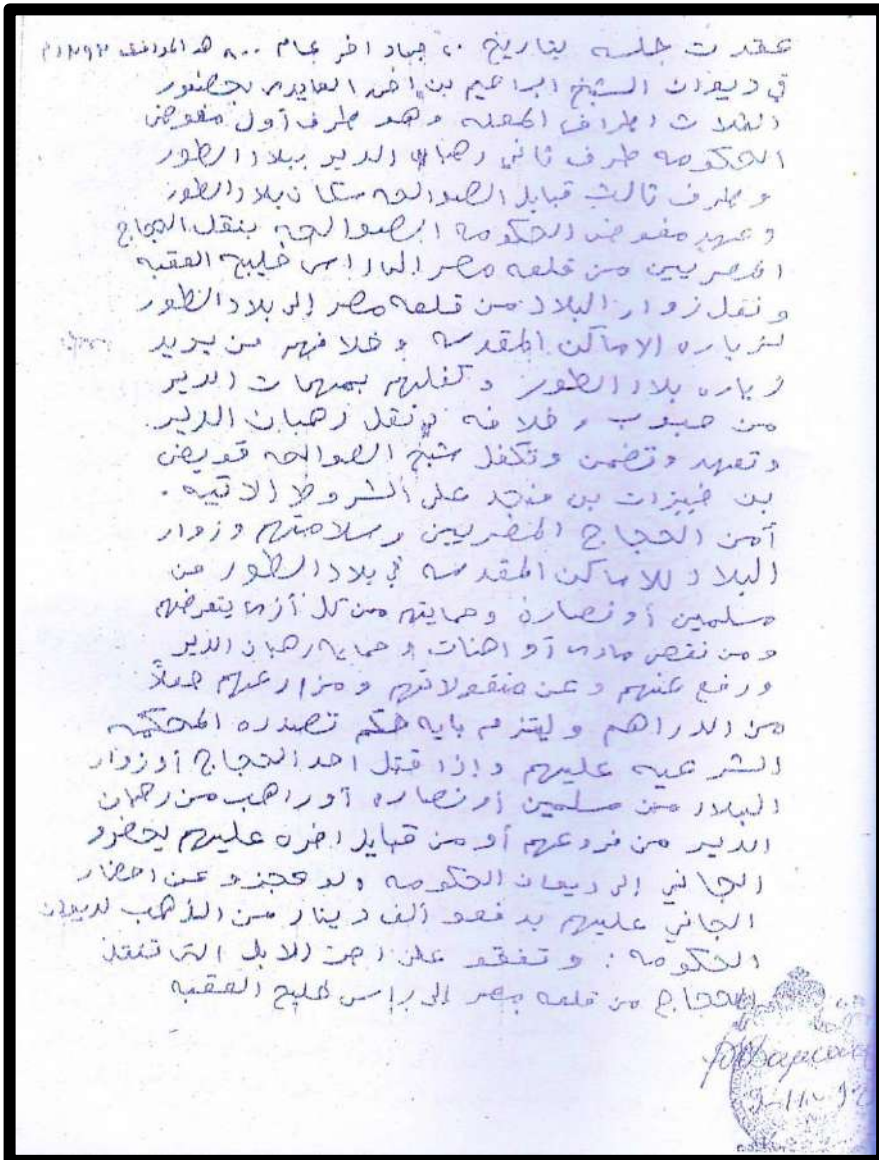 عقدت جلسه بتاريخ ٢٠ جماد اخر عام ٨٠٠ هـ الموافق ١٣٩٢م
في ديوان الشيخ ابراهيم بن احمد العايدى بحضور
الثلاث اطراف المعله وهو طرف أول مفوض
الحكومه طرف ثاني رهبان الدير ببلاد الطور
وطرف ثالث قبايل الصوالحه سكان بلاد الطور
وعهد مفوض الحكومه الصوالحه بنقل الحجاج
المصريين من قلعه مصر الى راس خليج العقبه
ونقل زوار البلاد من قلعه مصر إلى بلاد الطور
لزياره الاماكن المقدسه وخلافهم من يريد
زياره بلاد الطور وكفلهم بمهمات الدير
من حبوب وخلافه في نقل رهبان الدير
وتعهد وتضمن وتكفل شيخ الصوالحه قويض
بن خيزات بن منجد على الشروط الاتيه.
آمن الحجاج المصريين وسلامتهم وزوار
البلاد للاماكن المقدسه في بلاد الطور من
مسلمين أو نصاره وحمايتهم من كل أزى يتعرضهم
ومن نقص مادى أو اهنات وحمايه رهبان الدير
ورفع عنهم وعن منقولاتهم ومزارعهم
من الدراهم وليتزم بايه حكم تصدره المحكمه
الشرعيه عليهم وإذا قتل احد الحجاج أو زوار
البلاد من مسلمين أو نصاره أو راهب من رهبان
الدير من فروعهم أو من قبايل اخره عليهم يحضرو
الجاني إلى ديوان الحكومه ولو عجزو عن احضار
الجاني عليهم يدفعو ألف دينار من الذهب لديوان
الحكومه: وتفقو على اجرة الابل التى تنقل
الحجاج من قلعه مصر الى راس خليج العقبه